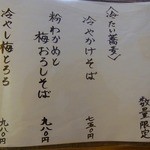 数量限定
〈冷たい蕎麦〉
冷やかけそば
七五〇円
粉わかめと
梅おろしそば
九八〇円
冷やし梅とろろ
九八〇円